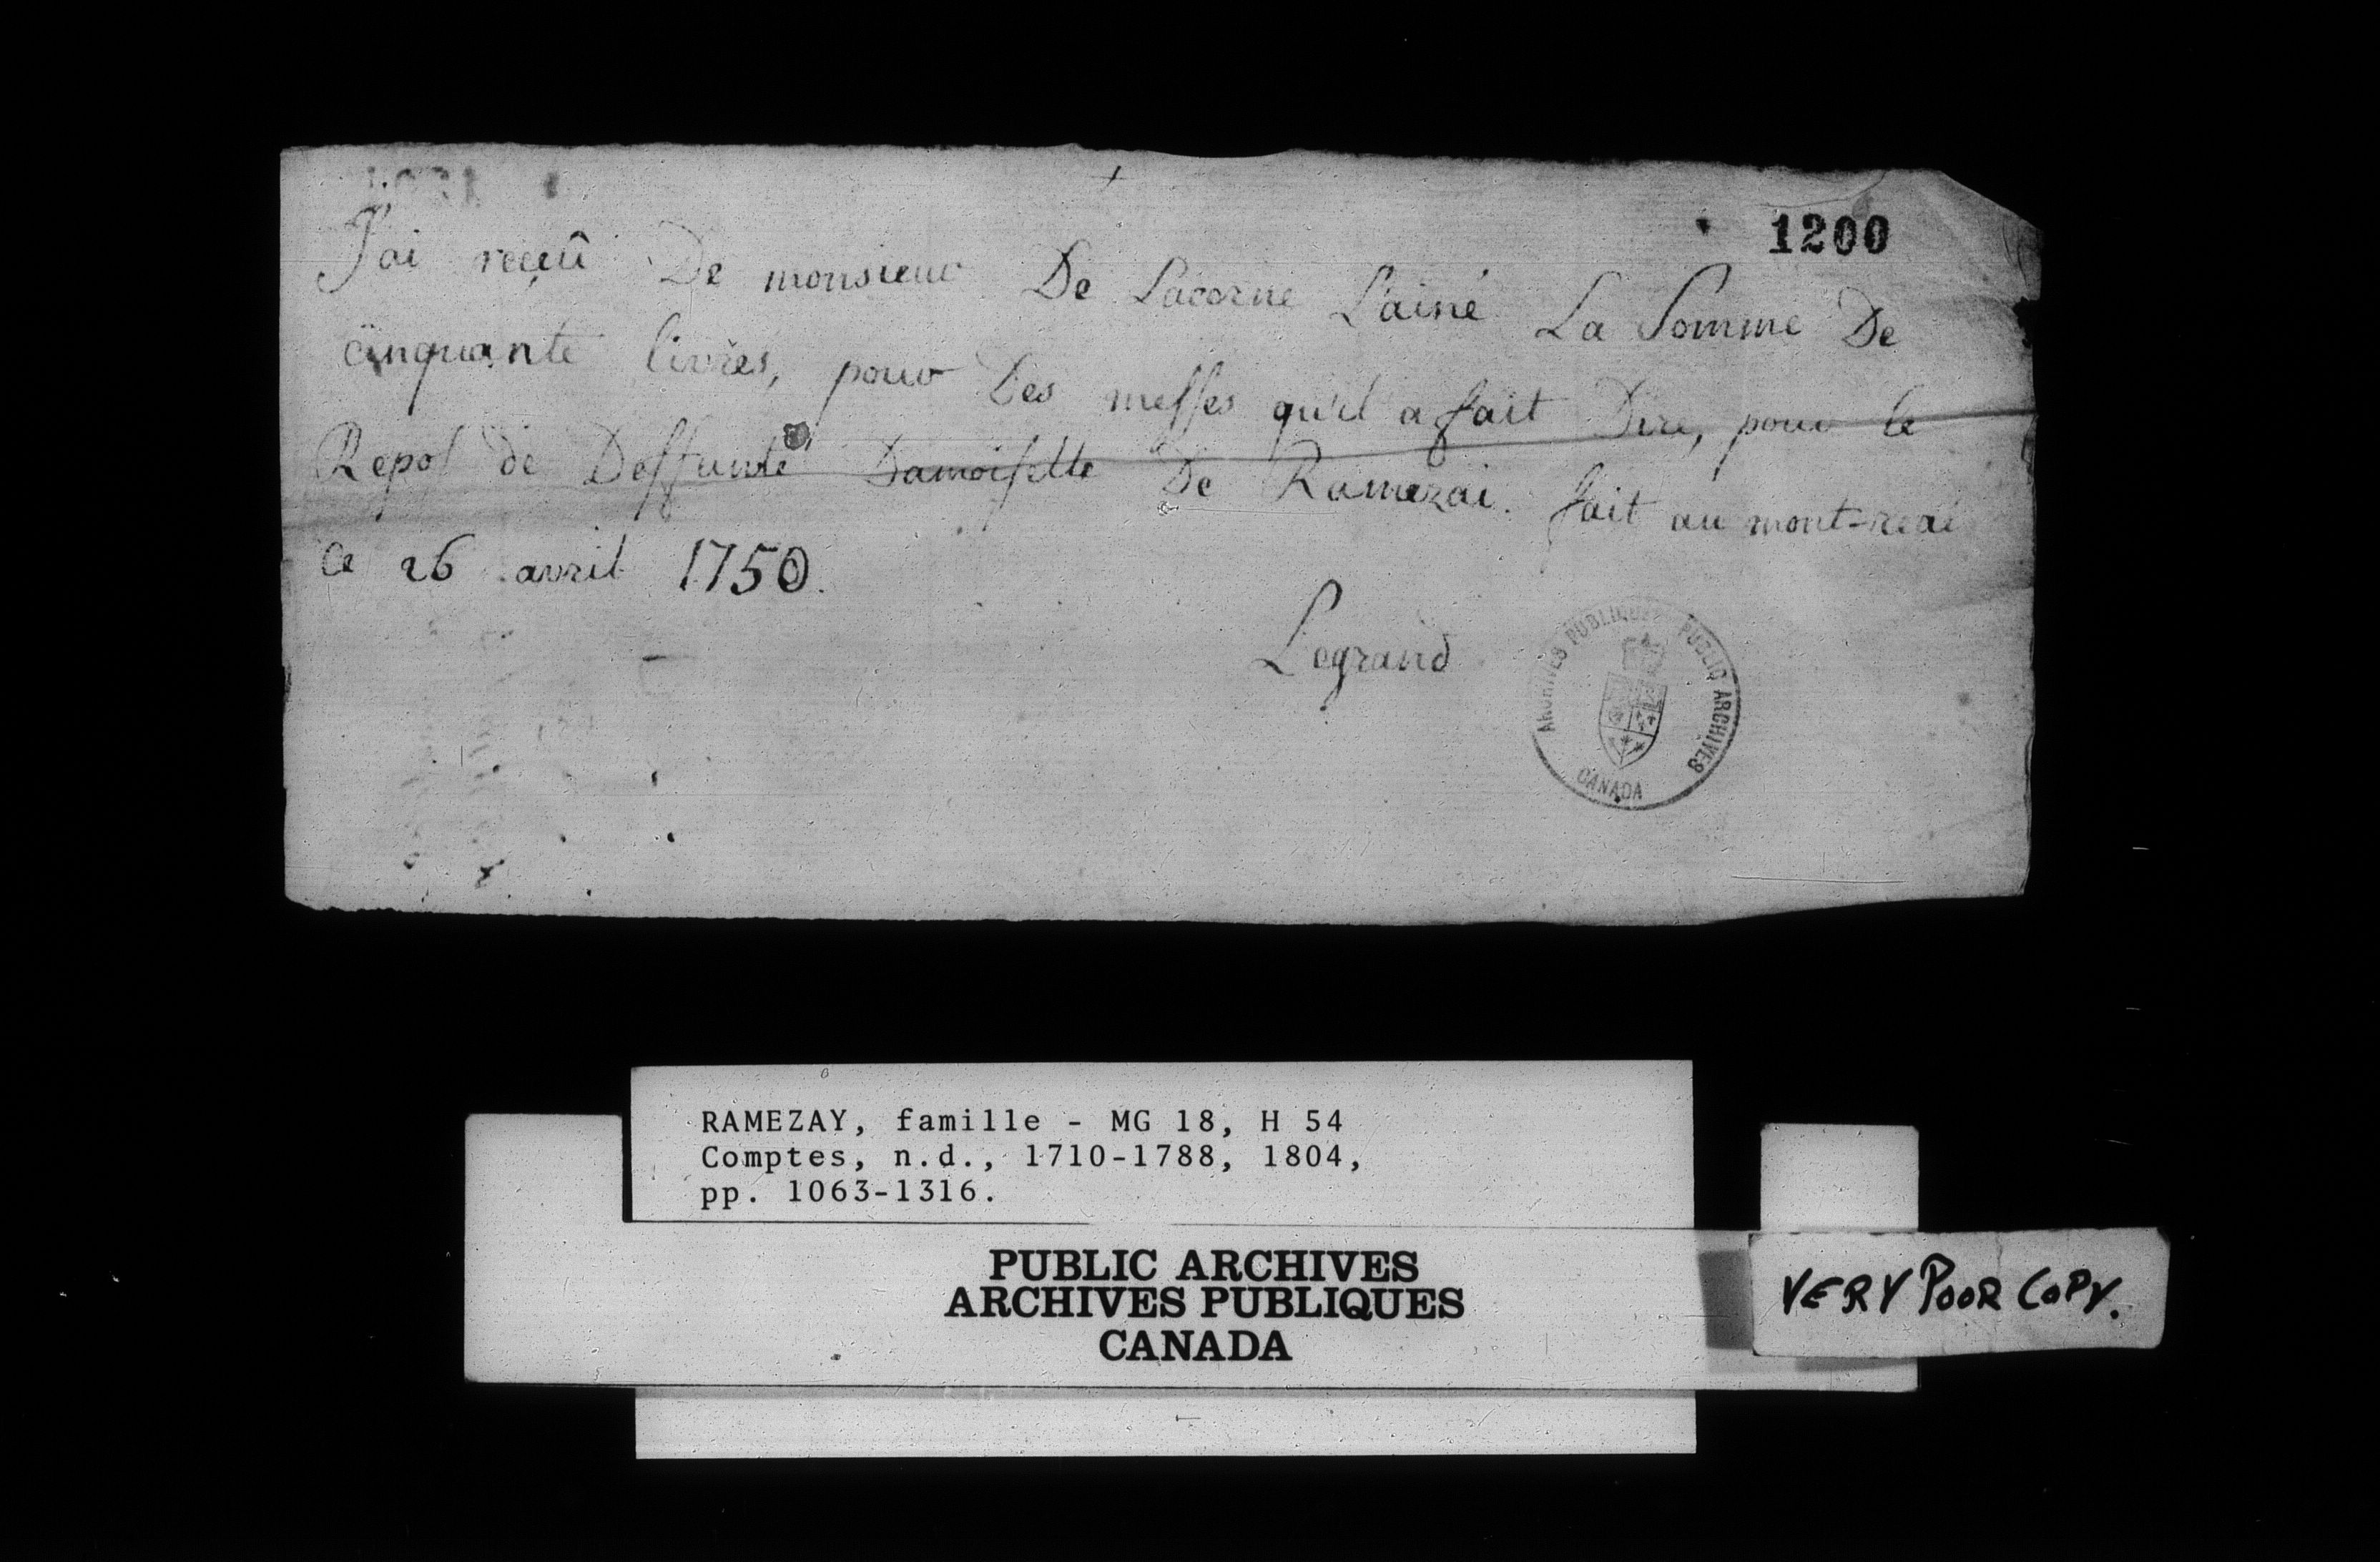 1200
J'ai reçeû De monsieur De Lacorne L'ainé La Somme De
cinquante livres, pour Des messes qu'il a fait Dire, pour le
Repos de Deffunte Damoiselle De Ramezai. fait au mont-real
ce 26 avril 1750.
Legrand
ARCHIVES PUBLIQUES PUBLIC ARCHIVES
CANADA
RAMEZAY, famille - MG 18, H 54
Comptes, n.d., 1710-1788, 1804,
pp. 1063-1316.
PUBLIC ARCHIVES
ARCHIVES PUBLIQUES
CANADA
VERY POOR COPY.